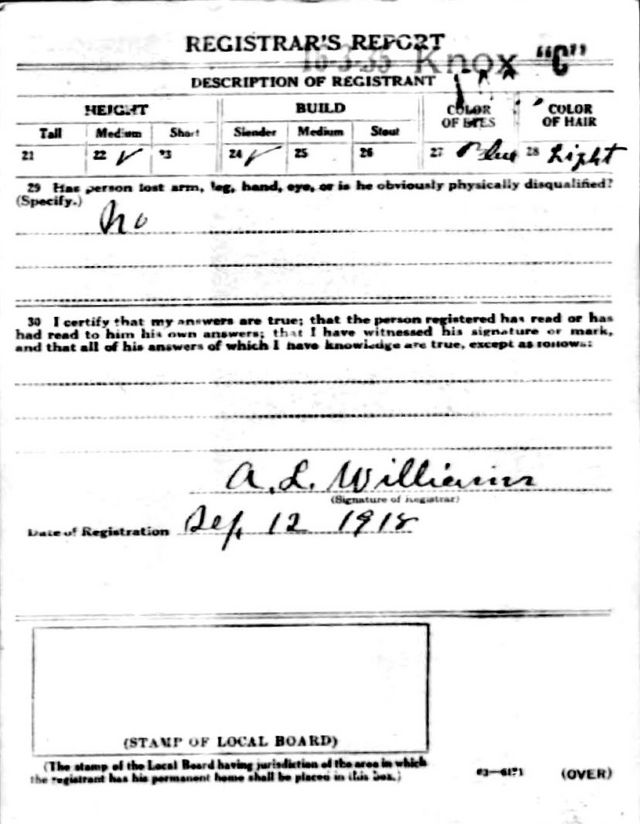 REGISTRAR'S REPORT
16-3-35 Knox "C"
DESCRIPTION OF REGISTRANT
HEIGHT BUILD COLOR OF EYES COLOR OF HAIR
Tall Medium Short Slender Medium Stout
21 22 ✓ 23 24 ✓ 25 26 27 Blue 28 Light
29 Has person lost arm, leg, hand, eye, or is he obviously physically disqualified?
(Specify.)
No
30 I certify that my answers are true; that the person registered has read or has
had read to him his own answers; that I have witnessed his signature or mark,
and that all of his answers of which I have knowledge are true, except as follows:
A. L. Williams
(Signature of Registrar)
Date of Registration Sep, 12 1918
(STAMP OF LOCAL BOARD)
(The stamp of the Local Board having jurisdiction of the area in which
the registrant has his permanent home shall be placed in this box.)
03—6171 (OVER)